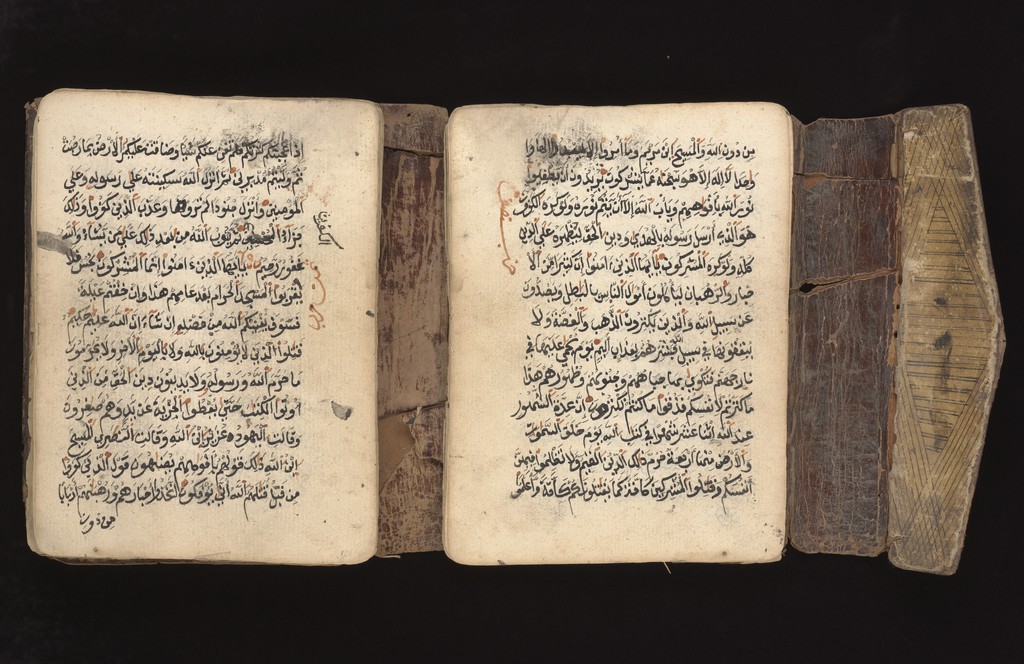 اذ اعجبتكم كثرتكم فلم تغن عنكم شيا وضاقت عليكم الارض بما رحبت
ثم وليتم مدبرين ثم انزل الله سكينته على رسوله وعلى
المومنين وانزل جنودا لم تروها وعذب الذين كفروا وذلك
جزاء ثم يتوب الله من بعد ذلك على من يشاء والله
الكفرين
غفور رحيم يايها الذين ءامنوا انما المشركون نجس فلا
يقربوا المسجد الحرام بعد عامهم هذا وان خفتم عيلة
فسوف يغنيكم الله من فضله ان شاء ان الله عليم حكيم
قتلوا الذين لا يومنون بالله ولا باليوم الاخر ولا يحرمون
ما حرم الله ورسوله ولا يدينون دين الحق من الذين
اوتوا الكتب حتى يعطوا الجزية عن يد وهم صغرون
وقالت اليهود عزير ابن الله وقالت النصرى المسيح
ابن الله ذلك قولهم بافوههم يضهون قول الذين كفروا
من قبل قتلهم الله انى يوفكون اتخذوا احبارهم ورهبنهم اربابا
من دون
من دون الله والمسيح ابن مريم وما امروا الا ليعبدوا الها
وحدا لا اله الا هو سبحنه عما يشركون يريدون ان يطفوا
نور الله بافوههم ويابى الله الا ان يتم نوره ولو كره الكفرون
هو الذي ارسل رسوله بالهدى ودين الحق ليظهره على الدين
كله ولو كره المشركون يايها الذين ءامنوا ان كثيرا من الا
حبار والرهبان لياكلون امول الناس بالبطل ويصدون
عن سبيل الله والذين يكنزون الذهب والفضة ولا
ينفقونها في سبيل الله فبشرهم بعذاب اليم يوم يحمى عليها في
نار جهنم فتكوى بها جباههم وجنوبهم وظهورهم هذا
ما كنزتم لانفسكم فذوقوا ما كنتم تكنزون ان عدة الشهور
عند الله اثنا عشر شهرا في كتب الله يوم خلق السموت
والارض منها اربعة حرم ذلك الدين القيم فلا تظلموا فيهن
انفسكم وقتلوا المشركين كافة كما يقتلونكم كافة واعلموا